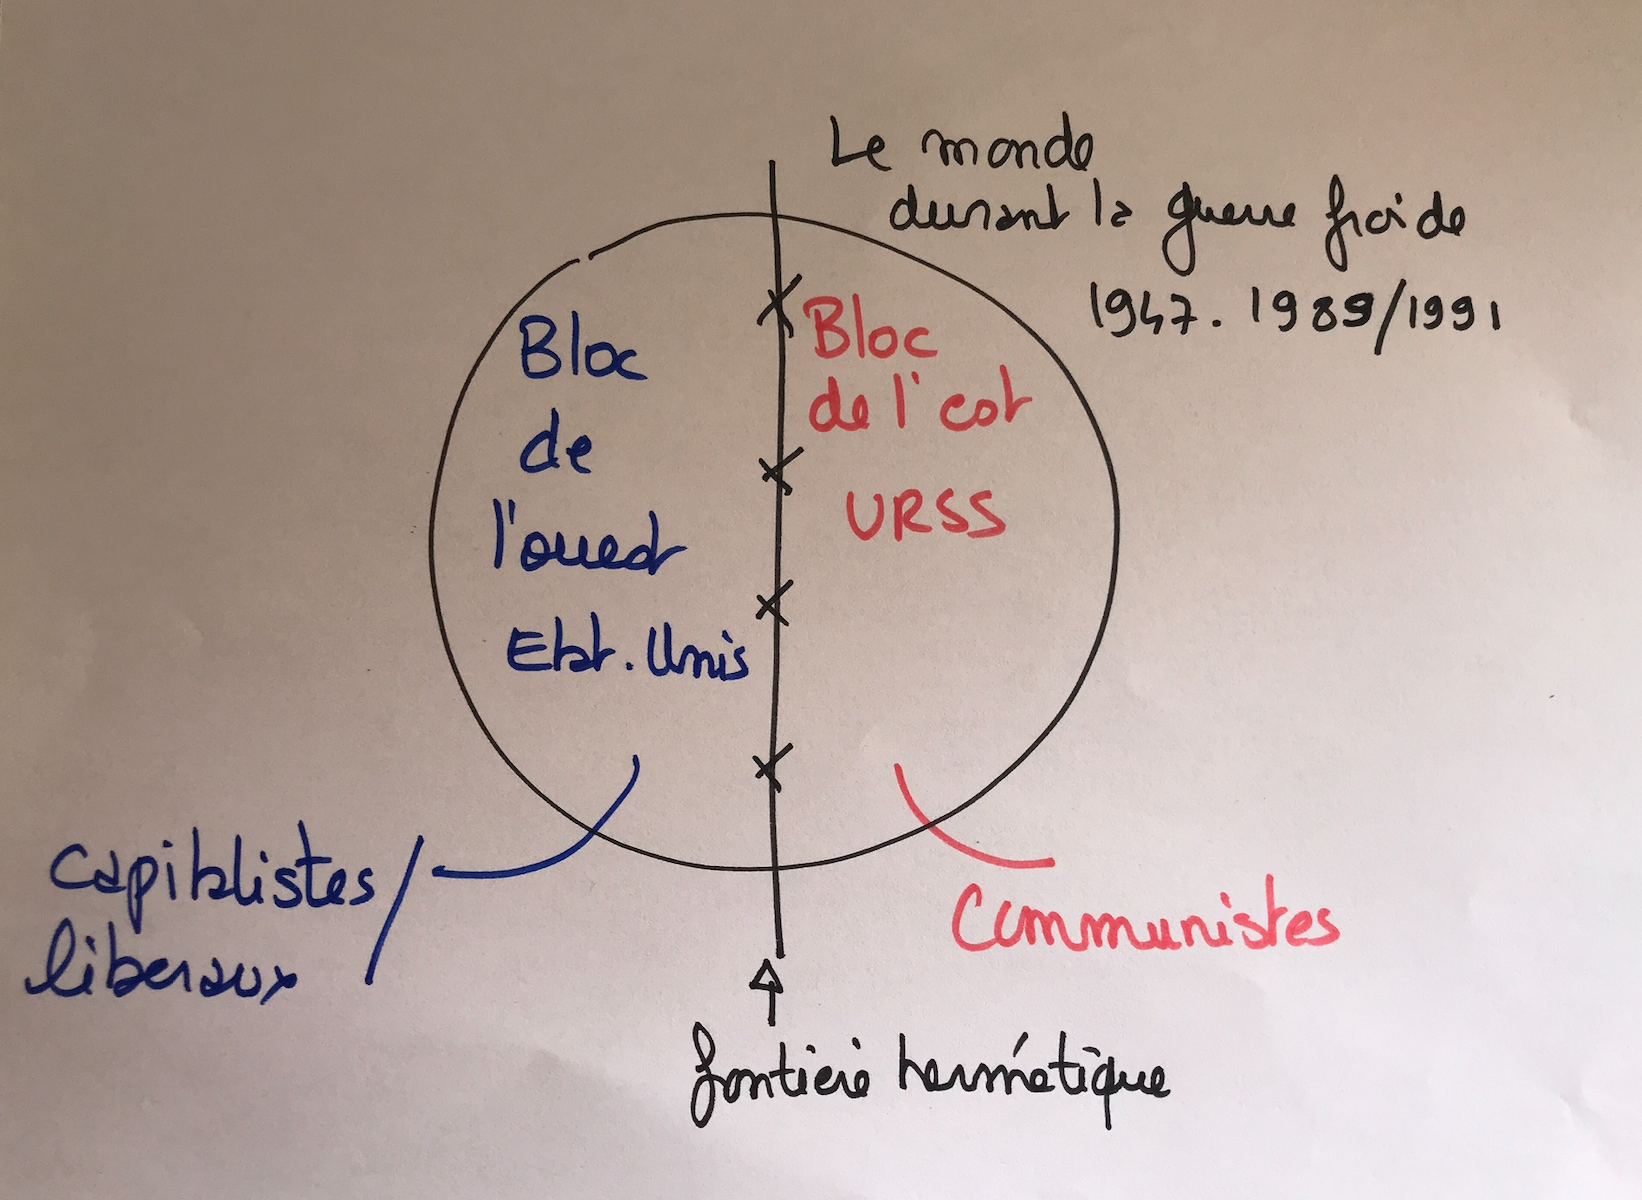 Le monde
durant la guerre froide
1947. 1989/1991
Bloc
de
l'ouest
Etat. Unis
Bloc
de l'est
URSS
Capitalistes/
liberaux
Communistes
frontière hermétique